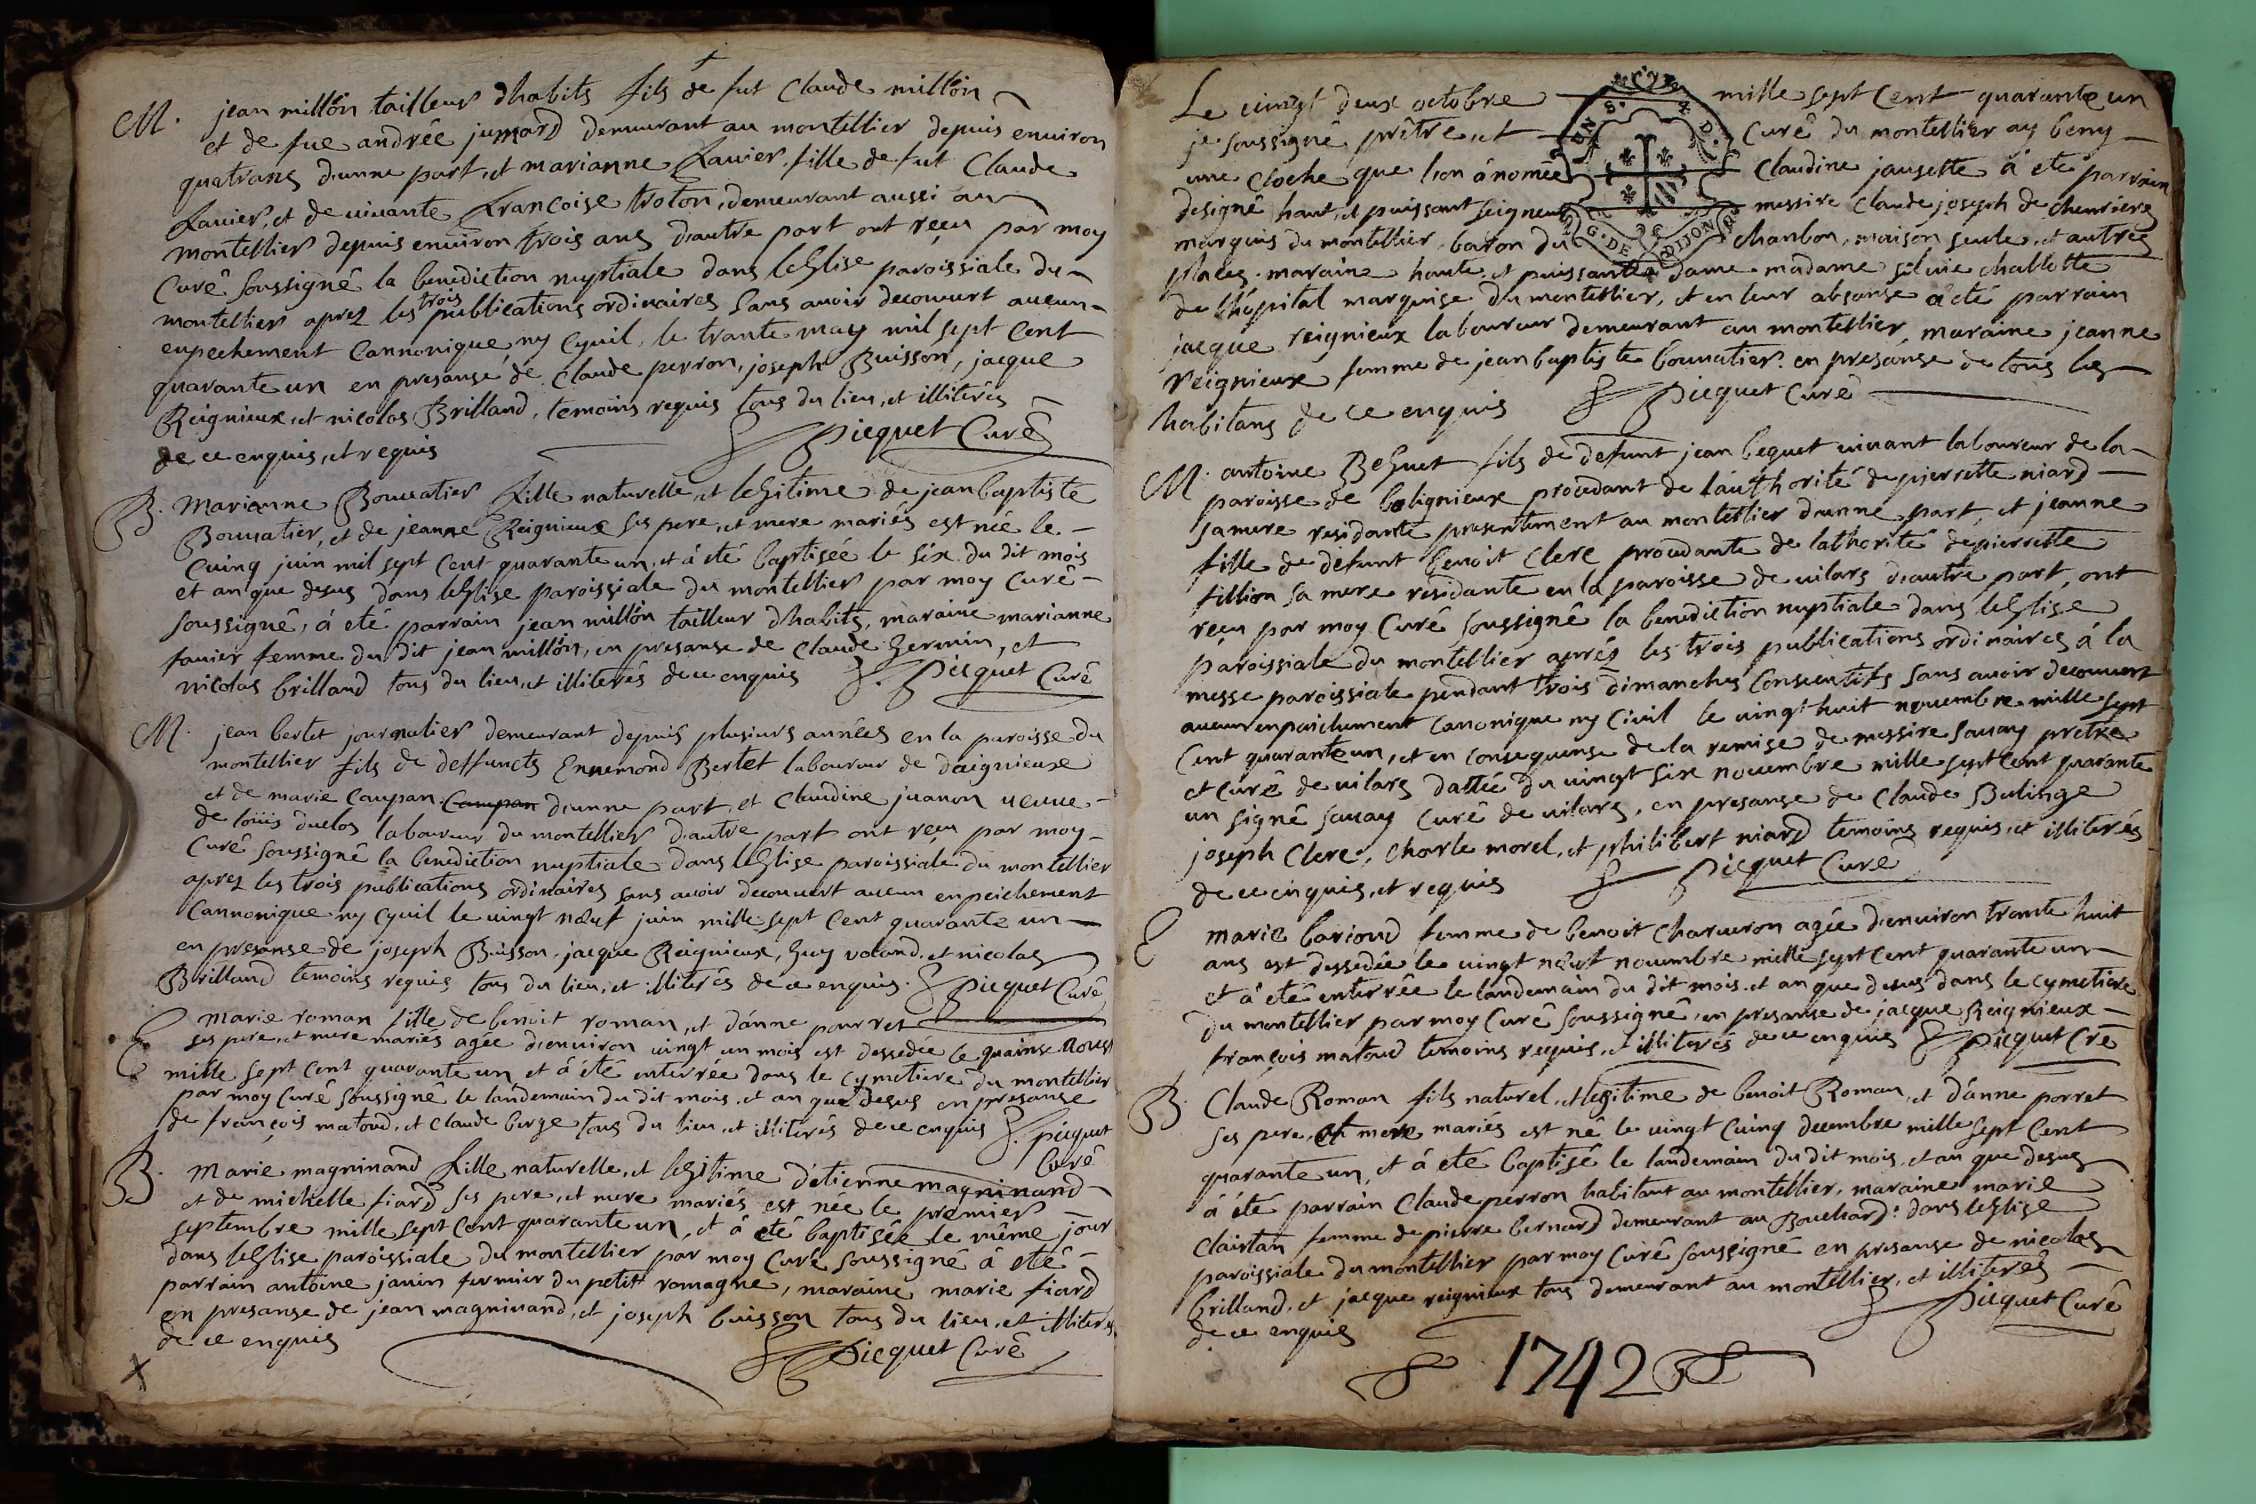 M. jean millon tailleur dhabits fils de fut Claude millon
et de fue andrée jumard demeurant au montellier depuis environ
quatrans d'unne part, et marianne favier fille de fut Claude
favier, et de vivante françoise troton, demeurant aussi au
montellier depuis environ trois ans d'autre part ont reçu par moy
Curé soussigné la benediction nuptiale dans leglise paroissiale du
montellier aprez les trois publications ordinaires sans avoir decouvert aucun
enpechement Cannonique ny Cyvil, le trante may mil sept Cent
quarante un en presanse de Claude perron, joseph Buisson, jacque
Reignieux, et nicolas Brilland, temoins requis tous du lieu, et illiterés
de ce enquis, et requis Picquet Curé
B. Marianne Bouvatier fille naturelle, et legitime de jean baptiste
Bouvatier, et de jeanne Reignieux ses pere, et mere mariés est née le
Cuinq juin mil sept Cent quarante un, et á eté baptisée le six du dit mois
et an que desus dans leglise paroissiale du montellier par moy Curé
soussigné, á eté parrain jean millon tailleur dhabits, maraine marianne
favier femme du dit jean millon, en presanse de Claude Germin, et
nicolas brilland tous du lieu, et illiterés de ce enquis Picquet Curé
M. jean bertet journalier demeurant depuis plusieurs années en la paroisse du
montellier fils de deffuncts Ennemond Bertet laboureur de daignieux
et de marie Caupan d'unne part, et Claudine juanon veuve
de loüis duclos laboureur du montellier d'autre part ont reçu par moy
Curé soussigné la benediction nuptiale dans leglise paroissiale du montellier
aprez les trois publications ordinaires sans avoir decouvert aucun enpeichement
Cannonique ny Cyvil le vingt neuf juin mille sept Cent quarante un
en presanse de joseph Buisson, jacque Reignieux, Guy voland, et nicolas
Brilland temoins requis tous du lieu, et illiterés de ce enquis. Picquet Curé
E marie roman fille de benoit roman, et d'anne pourret
ses pere, et mere mariés agée d'environ vingt un mois est dessedée le quainse aoust
mille sept Cent quarante un et á eté enterrée dans le Cymetiere du montellier
par moy Curé soussigné le landemain du dit mois, et an que desus en presanse
de françois matoud, et Claude berge tous du lieu, et illiterés de ce enquis Picquet
Curé
B. Marie magninand fille naturelle, et legitime d'etienne magninand
et de michelle fiard ses pere, et mere mariés est née le premier
septembre mille sept Cent quarante un, et á eté baptisée le même jour
dans leglise paroissiale du montellier par moy Curé soussigné á eté
parrain antoine janin fermier du petit romagne, maraine marie fiard
en presanse de jean magninand, et joseph buisson tous du lieu, et illiterés
de ce enquis Picquet Curé
Le vingt deux octobre mille sept Cent quarante un
je soussigné prêtre, et Curé du montellier ay beny
une Cloche que lion á nomée Claudine jausette á eté parrain
designé haut, et puissant seigneur messire Claude joseph de chevriers
marquis du montellier, baron du chanbon, maison seule, et autres
places, maraine haute, et puissante dame madame silvie challotte
de lhôpital marquise du montellier, et en leur absanse á eté parrain
jacque reignieux laboureur demeurant au montellier, maraine jeanne
reignieux femme de jean baptiste bouvatier en presanse de tous les
habitans de ce enquis Picquet Curé
M. antoine Beguet fils de defunt jean beguet vivant laboureur de la
paroisse de bolignieux procedant de l'authorité de pierrette niard
sa mere residante presentement au montellier d'unne part, et jeanne
fille de defunt benoit Clerc procedante de lathorité de pierrette
fillion sa mere residante en la paroisse de vilars d'autre part, ont
reçu par moy Curé soussigné la benediction nuptiale dans leglise
paroissiale du montellier aprés les trois publications ordinaires á la
messe paroissiale pendant trois dimanches Consecutifs sans avoir decouvert
aucun enpaichement Canonique ny Civil le vingt huit novembre mille sept
Cent quarante un, et en consequense de la remise de messire savay prêtre
et curé de vilars dattée du vingt six novembre mille sept Cent quarante
un signé savay curé de vilars, en presanse de Claude Bulinge
joseph Clerc, charle morel, et philibert niard temoins requis, et illiterés
de ce enquis, et requis Picquet Curé
E marie barioud femme de benoit charveron agée d'environ trante huit
ans est dessedée le vingt neuf novembre mille sept Cent quarante un
et á eté enterrée le landemain du dit mois, et an que desus dans le Cymetiere
du montellier par moy Curé soussigné, en presanse de jacque Reignieux
françois matoud temoins requis, et illiterés de ce enquis Picquet Cré
B. Claude Roman fils naturel, et legitime de benoit Roman, et d'anne porret
ses pere, et mere mariés est né le vingt Cuinq decembre mille sept Cent
quarante un, et á eté baptisé le landemain du dit mois, et an que desus
á eté parrain Claude perron habitant au montellier, maraine marie
Clairtan femme de pierre bernard demeurant au Bouchard: dans leglise
paroissiale du montellier par moy Curé soussigné en presanse de nicolas
brilland, et jacque reignieux tous demeurant au montellier, et illiterés
de ce enquis Picquet Curé
1742